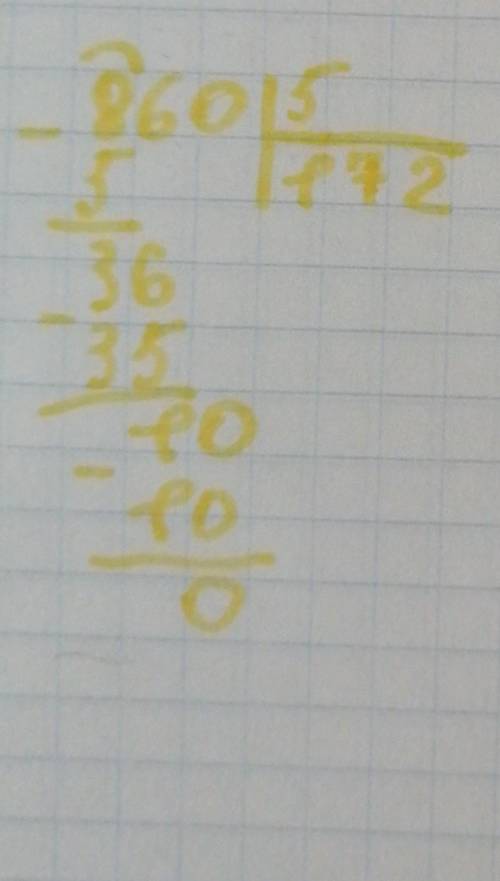 - 860 | 5
5 | 172
36
- 35
10
- 10
0